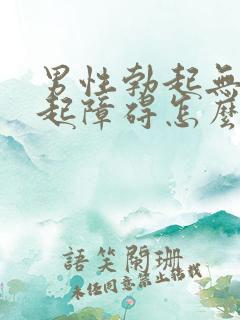 男性勃起無
起障碍怎麼
語笑闌珊
未任同意禁止转载